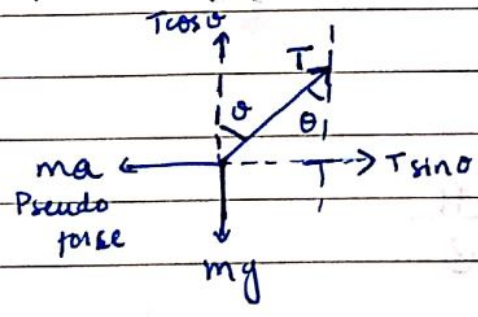 Tcosθ
T
θ
θ
ma
T sinθ
Pseudo
force
mg